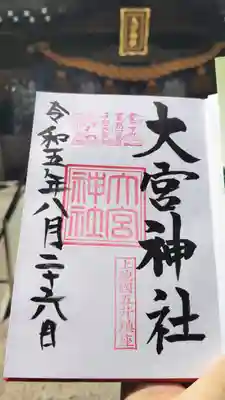 大宮神社
上総國五井鎮座
大宮
神社
令和五年八月二十六日